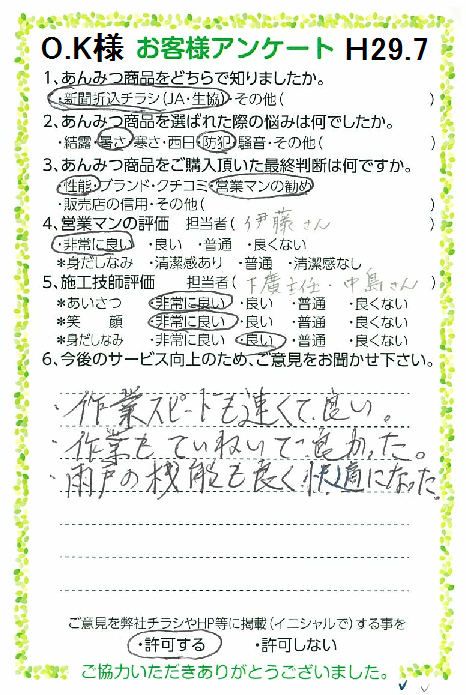 O.K様 お客様アンケート H29.7
1、あんみつ商品をどちらで知りましたか。
・新聞折込チラシ(JA・生協)・その他( )
2、あんみつ商品を選ばれた際の悩みは何でしたか。
・結露・暑さ・寒さ・西日・防犯・騒音・その他( )
3、あんみつ商品をご購入頂いた最終判断は何ですか。
・性能・ブランド・クチコミ・営業マンの勧め
・販売店の信用・その他( )
4、営業マンの評価 担当者( 伊藤さん )
・非常に良い ・良い ・普通 ・良くない
*身だしなみ ・清潔感あり ・普通 ・清潔感なし
5、施工技師評価 担当者( 下廣主任・中島さん )
*あいさつ ・非常に良い ・良い ・普通 ・良くない
*笑 顔 ・非常に良い ・良い ・普通 ・良くない
*身だしなみ ・非常に良い ・良い ・普通 ・良くない
6、今後のサービス向上のため、ご意見をお聞かせ下さい。
・作業スピードも速くて良い。
・作業もていねいで良かった。
・雨戸の機能も良く快適になった。
ご意見を弊社チラシやHP等に掲載(イニシャルで)する事を
・許可する ・許可しない
ご協力いただきありがとうございました。